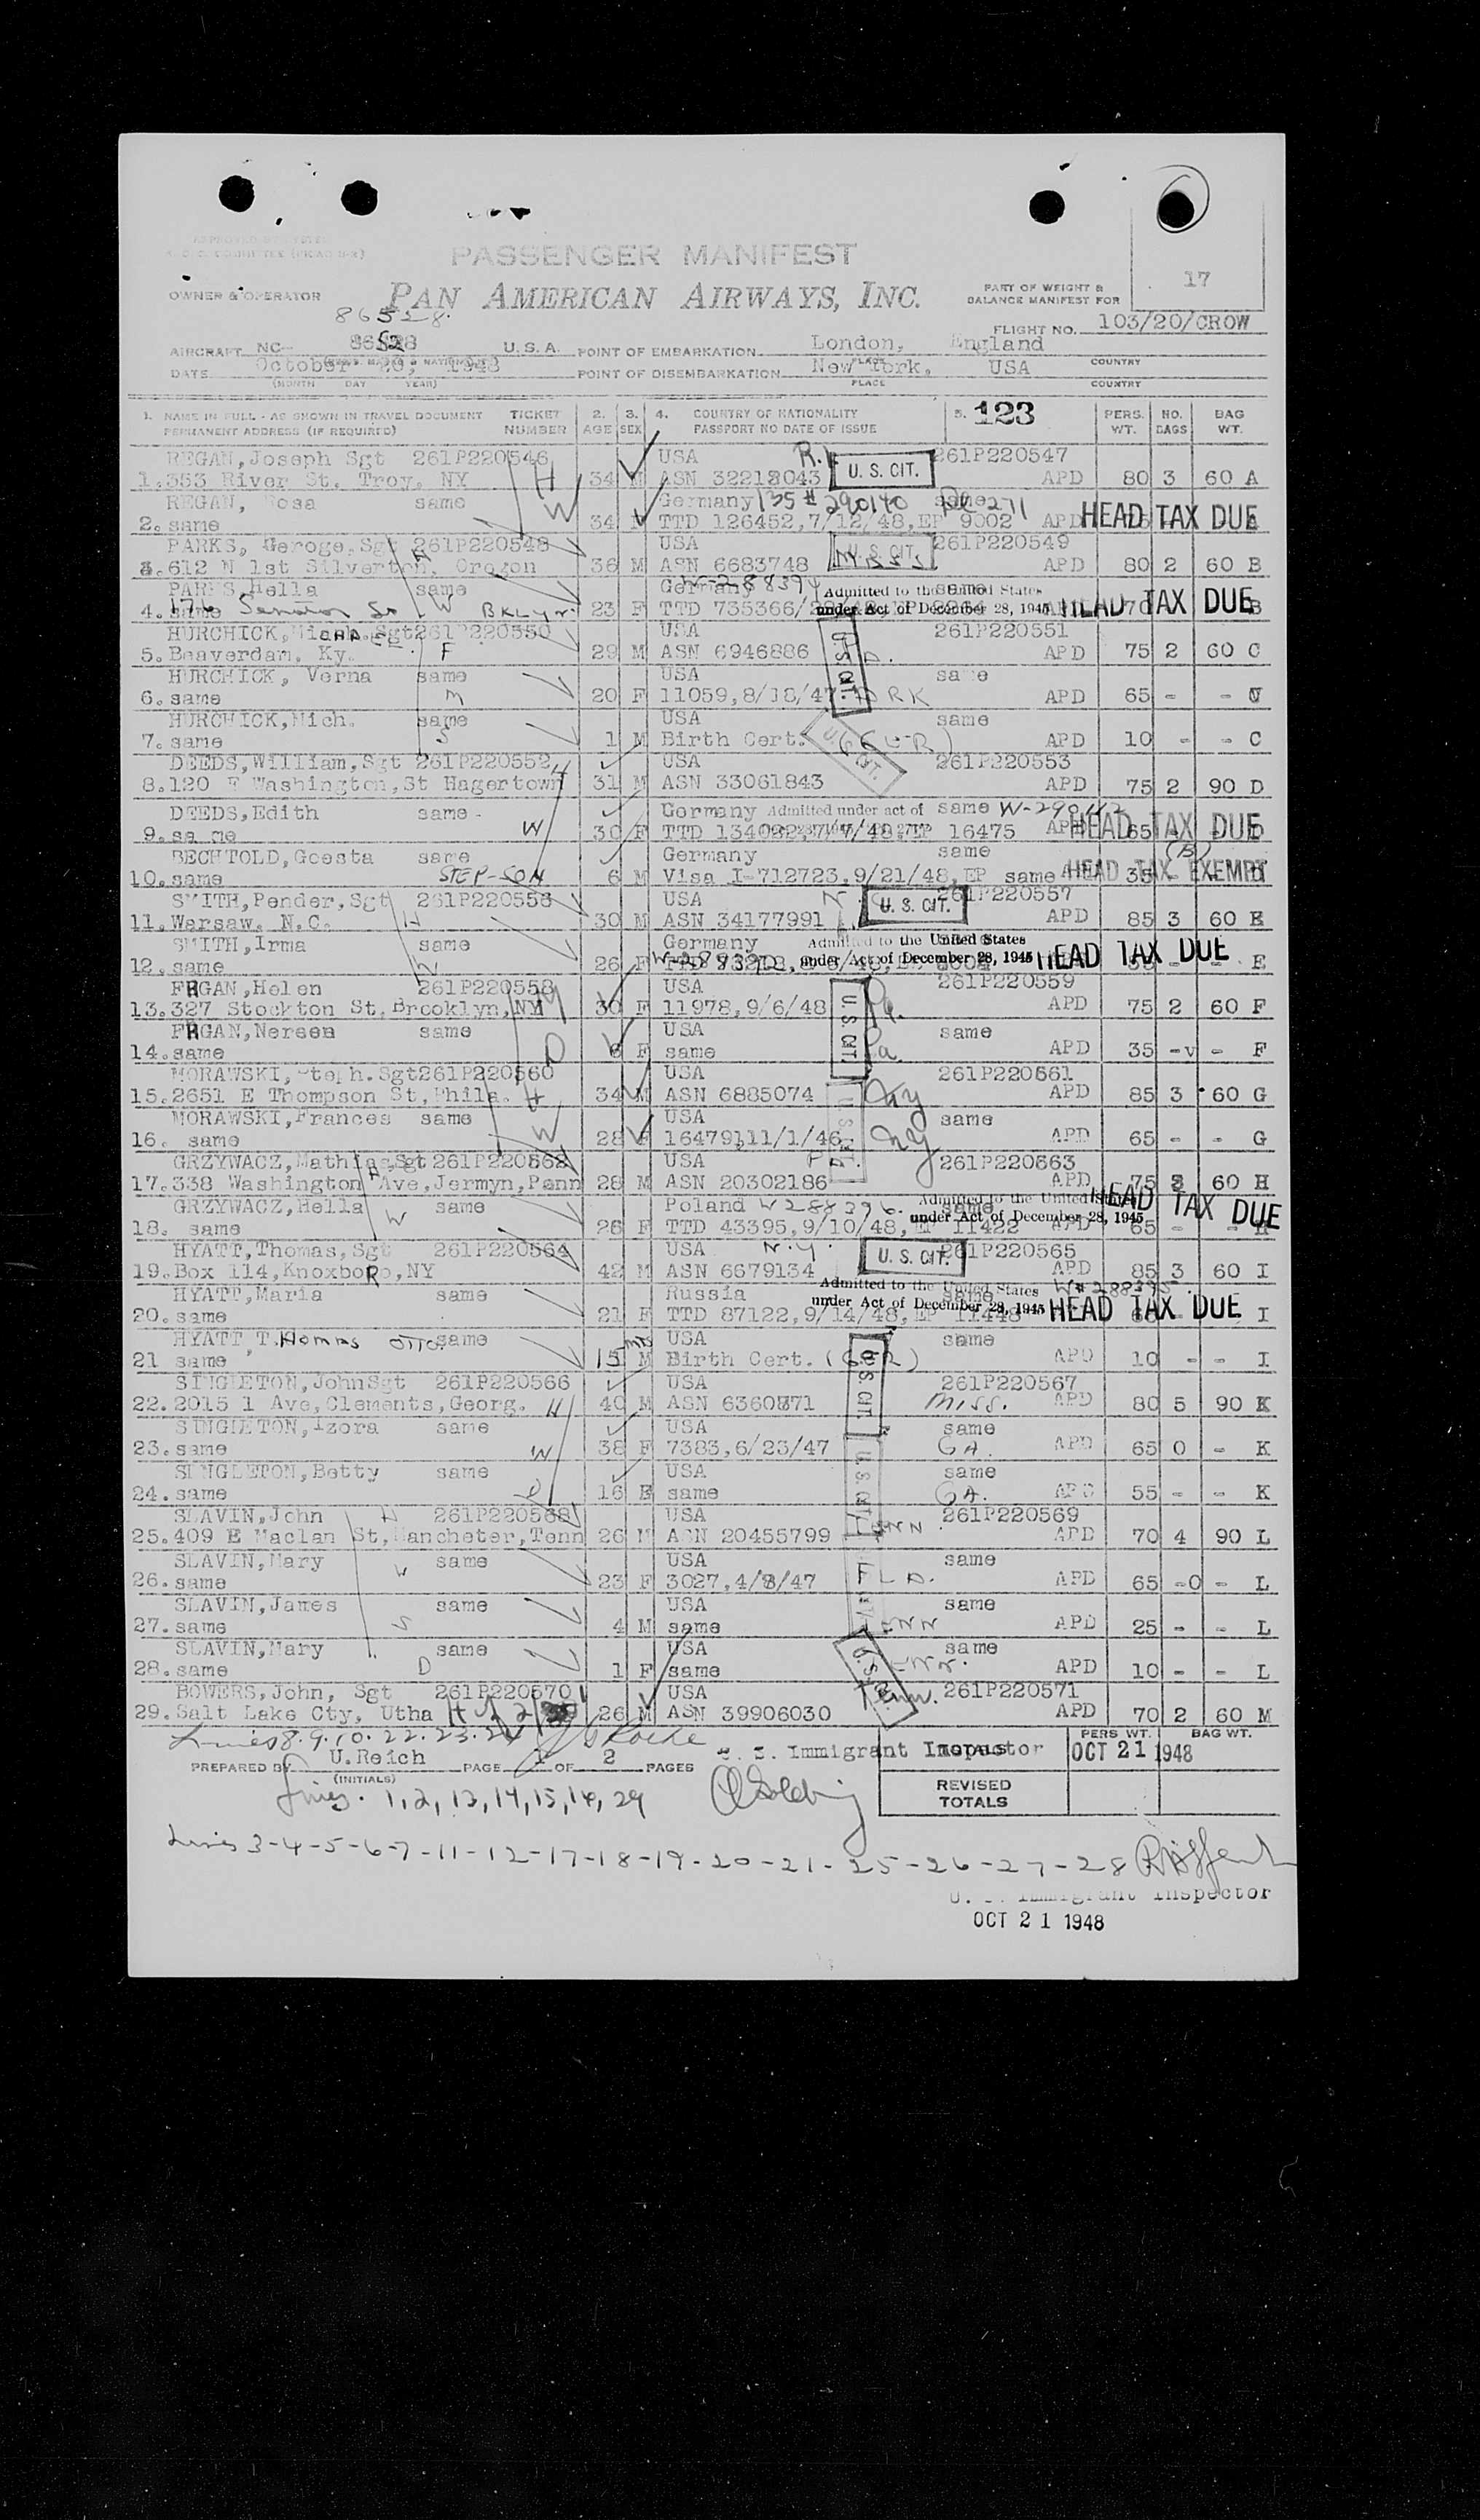 17
PASSENGER MANIFEST
OWNER & OPERATOR PAN AMERICAN AIRWAYS, INC. PART OF WEIGHT & BALANCE MANIFEST FOR
86528
FLIGHT NO. 103/20/CROW
AIRCRAFT NC- U.S.A. POINT OF EMBARKATION London, England
DATE October 20, 1948 POINT OF DISEMBARKATION New York, USA
(MONTH DAY YEAR) PLACE COUNTRY
1. NAME IN FULL - AS SHOWN IN TRAVEL DOCUMENT TICKET 2. 3. 4. COUNTRY OF NATIONALITY 5. 123 PERS. NO. BAG
PERMANENT ADDRESS (IF REQUIRED) NUMBER AGE SEX PASSPORT NO DATE OF ISSUE WT. BAGS WT.
REGAN, Joseph Sgt 261P220546 USA 261P220547
1. 353 River St. Troy, NY H 34 M ASN 32218043 U. S. CIT. APD 80 3 60 A
REGAN, Rosa same Germany 290140 same
2. same W 34 TTD 126452, 7/12/48, EP 9002 APD HEAD TAX DUE
PARKS, George, Sgt 261P220548 USA U. S. CIT. 261P220549
3. 612 N 1st Silverton, Oregon 36 M ASN 6683748 APD 80 2 60 B
PARKS, Hella same Germany W-288394 same Admitted to the United States
4. same W BKLyn. 23 F TTD 735366/ under Act of December 28, 1945 HEAD TAX DUE B
HURCHICK, Mich. Sgt 261P220550 USA 261P220551
5. Beaverdam, Ky. F 29 M ASN 6946886 U. S. CIT. APD 75 2 60 C
HURCHICK, Verna same USA same
6. same M 20 F 11059, 8/18/47 ARK APD 65 - - C
HURCHICK, Mich. same USA same
7. same S 1 M Birth Cert. (GER) APD 10 - - C
DEEDS, William, Sgt 261P220552 H USA 261P220553
8. 120 E Washington, St Hagertown 31 M ASN 33061843 APD 75 2 90 D
DEEDS, Edith same - Germany Admitted under act of same W-290142
9. same W 30 F TTD 134082, 7/7/48, EP 16475 APD HEAD TAX DUE 65 D
BECHTOLD, Goesta same Germany same
10. same STEP-SON 6 M Visa I-712723, 9/21/48, EP same HEAD TAX EXEMPT 35
SMITH, Pender, Sgt 261P220556 USA U. S. CIT. 261P220557
11. Warsaw, N.C. H 30 M ASN 34177991 APD 85 3 60 E
SMITH, Irma same Germany Admitted to the United States
12. same 26 F under Act of December 28, 1945 HEAD TAX DUE - - E
Helen 261P220558 USA 261P220559
13. 327 Stockton St, Brooklyn, NY M 30 F 11978, 9/6/48 U. S. CIT. Pa. APD 75 2 60 F
same USA same
14. same D 6 F same Pa APD 35 - - F
MORAWSKI, Steph. Sgt 261P220560 USA 261P220561
15. 2651 E Thompson St, Phila. H 34 M ASN 6885074 NY APD 85 3 60 G
MORAWSKI, Frances same USA same
16. same W 28 F 16479, 11/1/46 NY APD 65 - - G
GRZYWACZ, Mathias, Sgt 261P220562 USA 261P220563
17. 338 Washington Ave, Jermyn, Penn 28 M ASN 20302186 APD 75 3 60 H
GRZYWACZ, Hella same Poland W288396. same Admitted to the United States
18. same W 26 F TTD 43395, 9/10/48, EP 11422 under Act of December 28, 1945 APD HEAD TAX DUE 65 - H
HYATT, Thomas, Sgt 261P220564 USA N.Y. U. S. CIT. 261P220565
19. Box 114, Knoxboro, NY 42 M ASN 6679134 APD 85 3 60 I
HYATT, Maria same Russia Admitted to the United States W#288395
20. same 21 F TTD 87122, 9/14/48, EP 11448 under Act of December 28, 1945 HEAD TAX DUE I
HYATT, T. Homas OTTO same USA same
21 same 15 mts M Birth Cert. (GER) U. S. CIT. APD 10 - - I
SINGLETON, John Sgt 261P220566 USA 261P220567
22. 2015 1 Ave, Clements, Georg. H 40 M ASN 6360871 miss. APD 80 5 90 K
SINGLETON, Izora same USA same
23. same W 38 F 7383, 6/23/47 GA. APD 65 0 - K
SINGLETON, Betty same USA same
24. same 16 F same GA. APD 55 - - K
SLAVIN, John H 261P220568 USA 261P220569
25. 409 E Maclan St, Mancheter, Tenn 26 M ASN 20455799 APD 70 4 90 L
SLAVIN, Mary same USA same
26. same W 23 F 3027, 4/8/47 FLA. APD 65 -0- L
SLAVIN, James same USA same
27. same S 4 M same APD 25 - - L
SLAVIN, Mary same USA same
28. same D 1 F same APD 10 - - L
BOWERS, John, Sgt 261P220570 USA 261P220571
29. Salt Lake Cty, Utha H 26 M ASN 39906030 Tenn. APD 70 2 60 M
Lines 8. 9. 10. 22. 23. 24 U. S. Immigrant Inspector TOTALS PERS WT. BAG WT.
PREPARED BY U. Reich PAGE 1 OF 2 PAGES OCT 21 1948
(INITIALS)
REVISED TOTALS
Lines. 1, 2, 13, 14, 15, 16, 29
Lines 3-4-5-6-7-11-12-17-18-19-20-21-25-26-27-28
U. S. Immigrant Inspector
OCT 21 1948